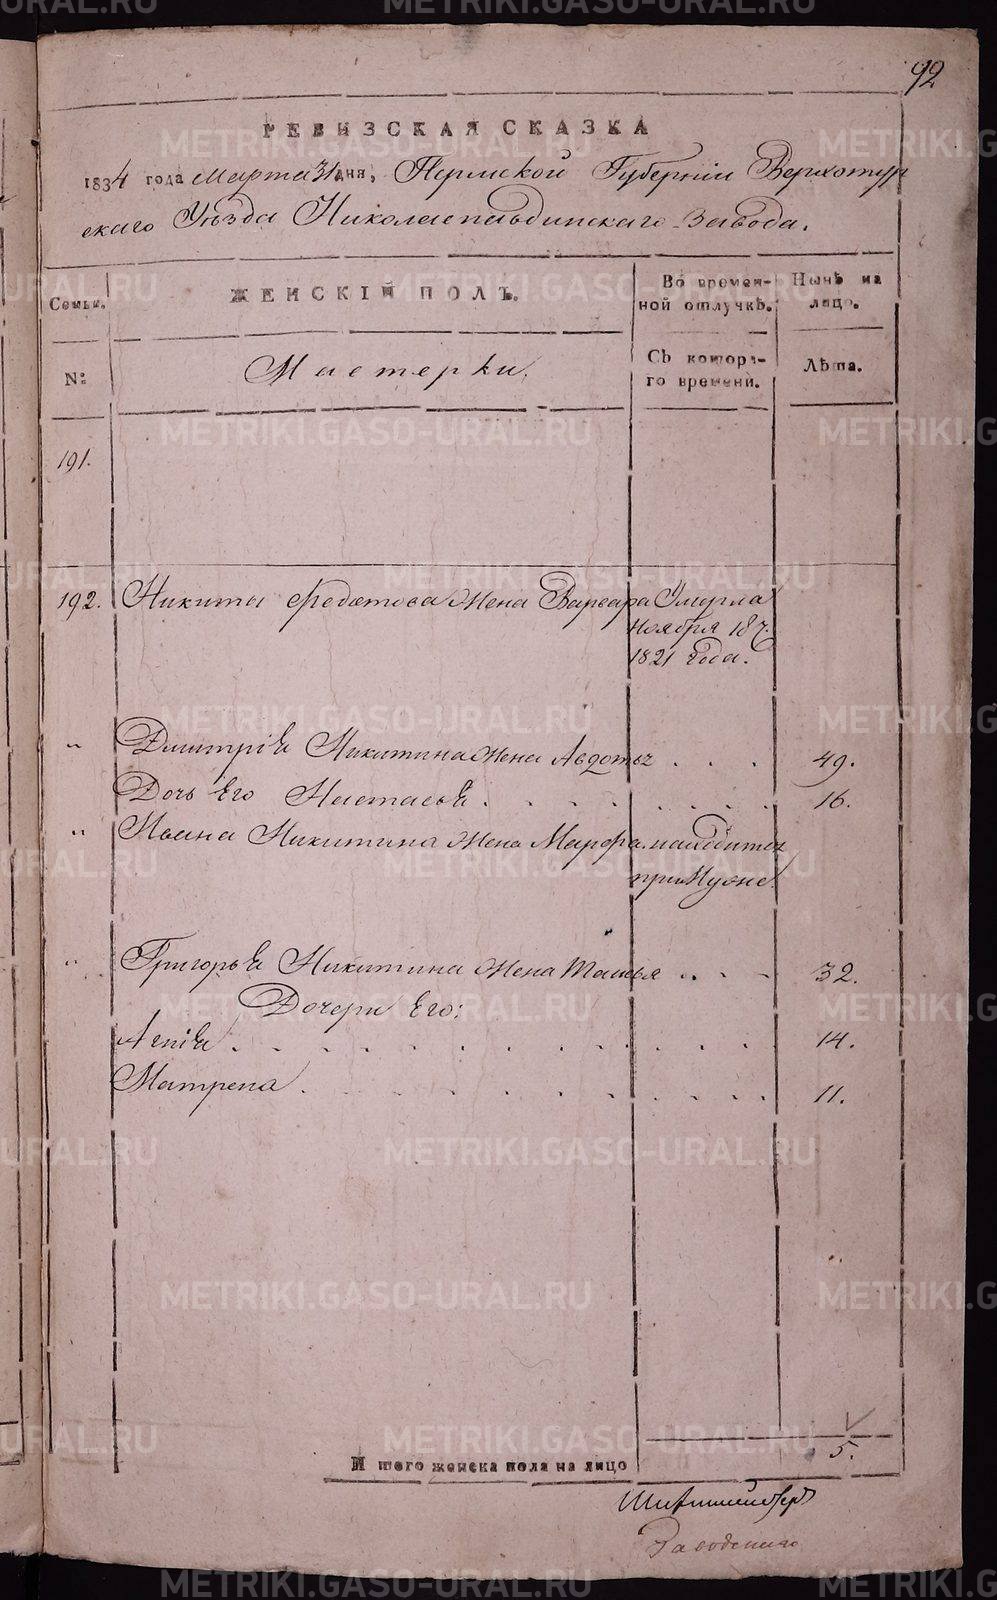 92
РЕВИЗСКАЯ СКАЗКА
1834 года Марта 31 дня, Пермской Губерніи Верхотур
скаго Уѣзда Николаепавдинскаго Завода.
Семьи.
ЖЕНСКІЙ ПОЛЪ.
Во времен-
ной отлучкѣ.
Нынѣ на
лицо.
№
Мастерки.
Съ котора-
го времени.
Лѣта.
191.
192. Никиты Федотова Жена Варвара Умерла
Ноября 18 ч.
1821 года.
" Дмитрія Никитина Жена Авдотья . . . 49.
Дочь Его Настасья . . . . . . . . 16.
" Ивана Никитина Жена Марфа находится
при Мужѣ.
" Григорья Никитина Жена Татья . . . 32.
Дочери Его:
Агнія . . . . . . . . . . . . 14.
Матрена . . . . . . . . . . . 11.
Итого женска пола на лицо 5.
Заводскаго
METRIKI.GASO-URAL.RU